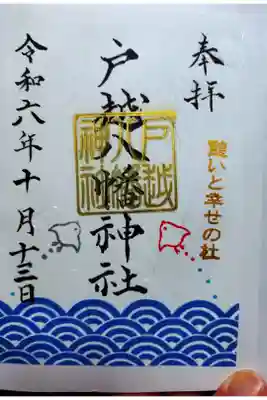 奉拝
憩いと幸せの杜
戸越八幡神社
戸越八幡神社
令和六年十月十三日